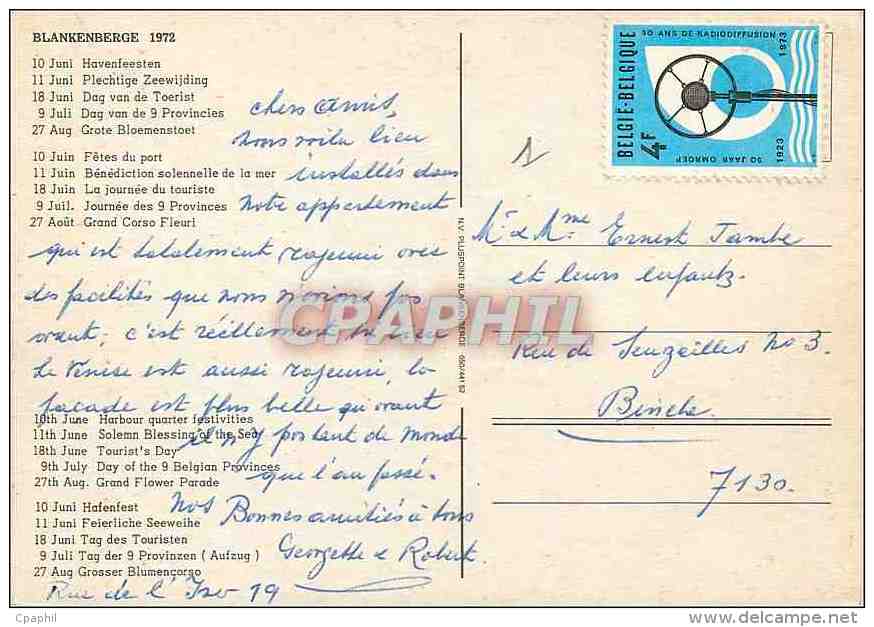 BLANKENBERGE 1972
10 Juni Havenfeesten
11 Juni Plechtige Zeewijding
18 Juni Dag van de Toerist
9 Juli Dag van de 9 Provincies
27 Aug Grote Bloemenstoet
10 Juin Fêtes du port
11 Juin Bénédiction solennelle de la mer
18 Juin La journée du touriste
9 Juil. Journée des 9 Provinces
27 Août Grand Corso Fleuri
chers amis,
nous voila bien
installés dans
notre appartement
qui est totalement rajeuni avec
des facilités que nous n'avions pas
avant; c'est réellement
Le Venise est aussi rajeuni, la
façade est plus belle qu'avant
il n'y pas tant de monde
que l'an passé.
Nos Bonnes amitiés à tous
Georgette & Robert
Rue de l' 19
10th June Harbour quarter festivities
11th June Solemn Blessing of the Sea
18th June Tourist's Day
9th July Day of the 9 Belgian Provinces
27th Aug. Grand Flower Parade
10 Juni Hafenfest
11 Juni Feierliche Seeweihe
18 Juni Tag des Touristen
9 Juli Tag der 9 Provinzen ( Aufzug )
27 Aug Grosser Blumencorso
N.V. PLUSPOINT BLANKENBERGE 050/441 52
BELGIË-BELGIQUE
4F
50 ANS DE RADIODIFFUSION
1973
50 JAAR OMROEP
1923
1
Mr & Mme Ernest Jambe
et leurs enfants.
Rue de No 3.
Binche
7130.
CPAPHIL
Cpaphil
www.delcampe.net